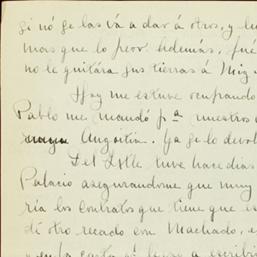 si nó se las vá a dar á otros, y le
mas que lo peor. Además, fué
no le quitára sus tierras á Mig
Hoy me estuve ocupando
Pablo me mandó pª nuestros
Angoitia. Ya se lo devol
Del Valle tuve hace dias
Palacio asegurandome que muy
ría los contratos que tiene que
dí otro recado con Machado, e